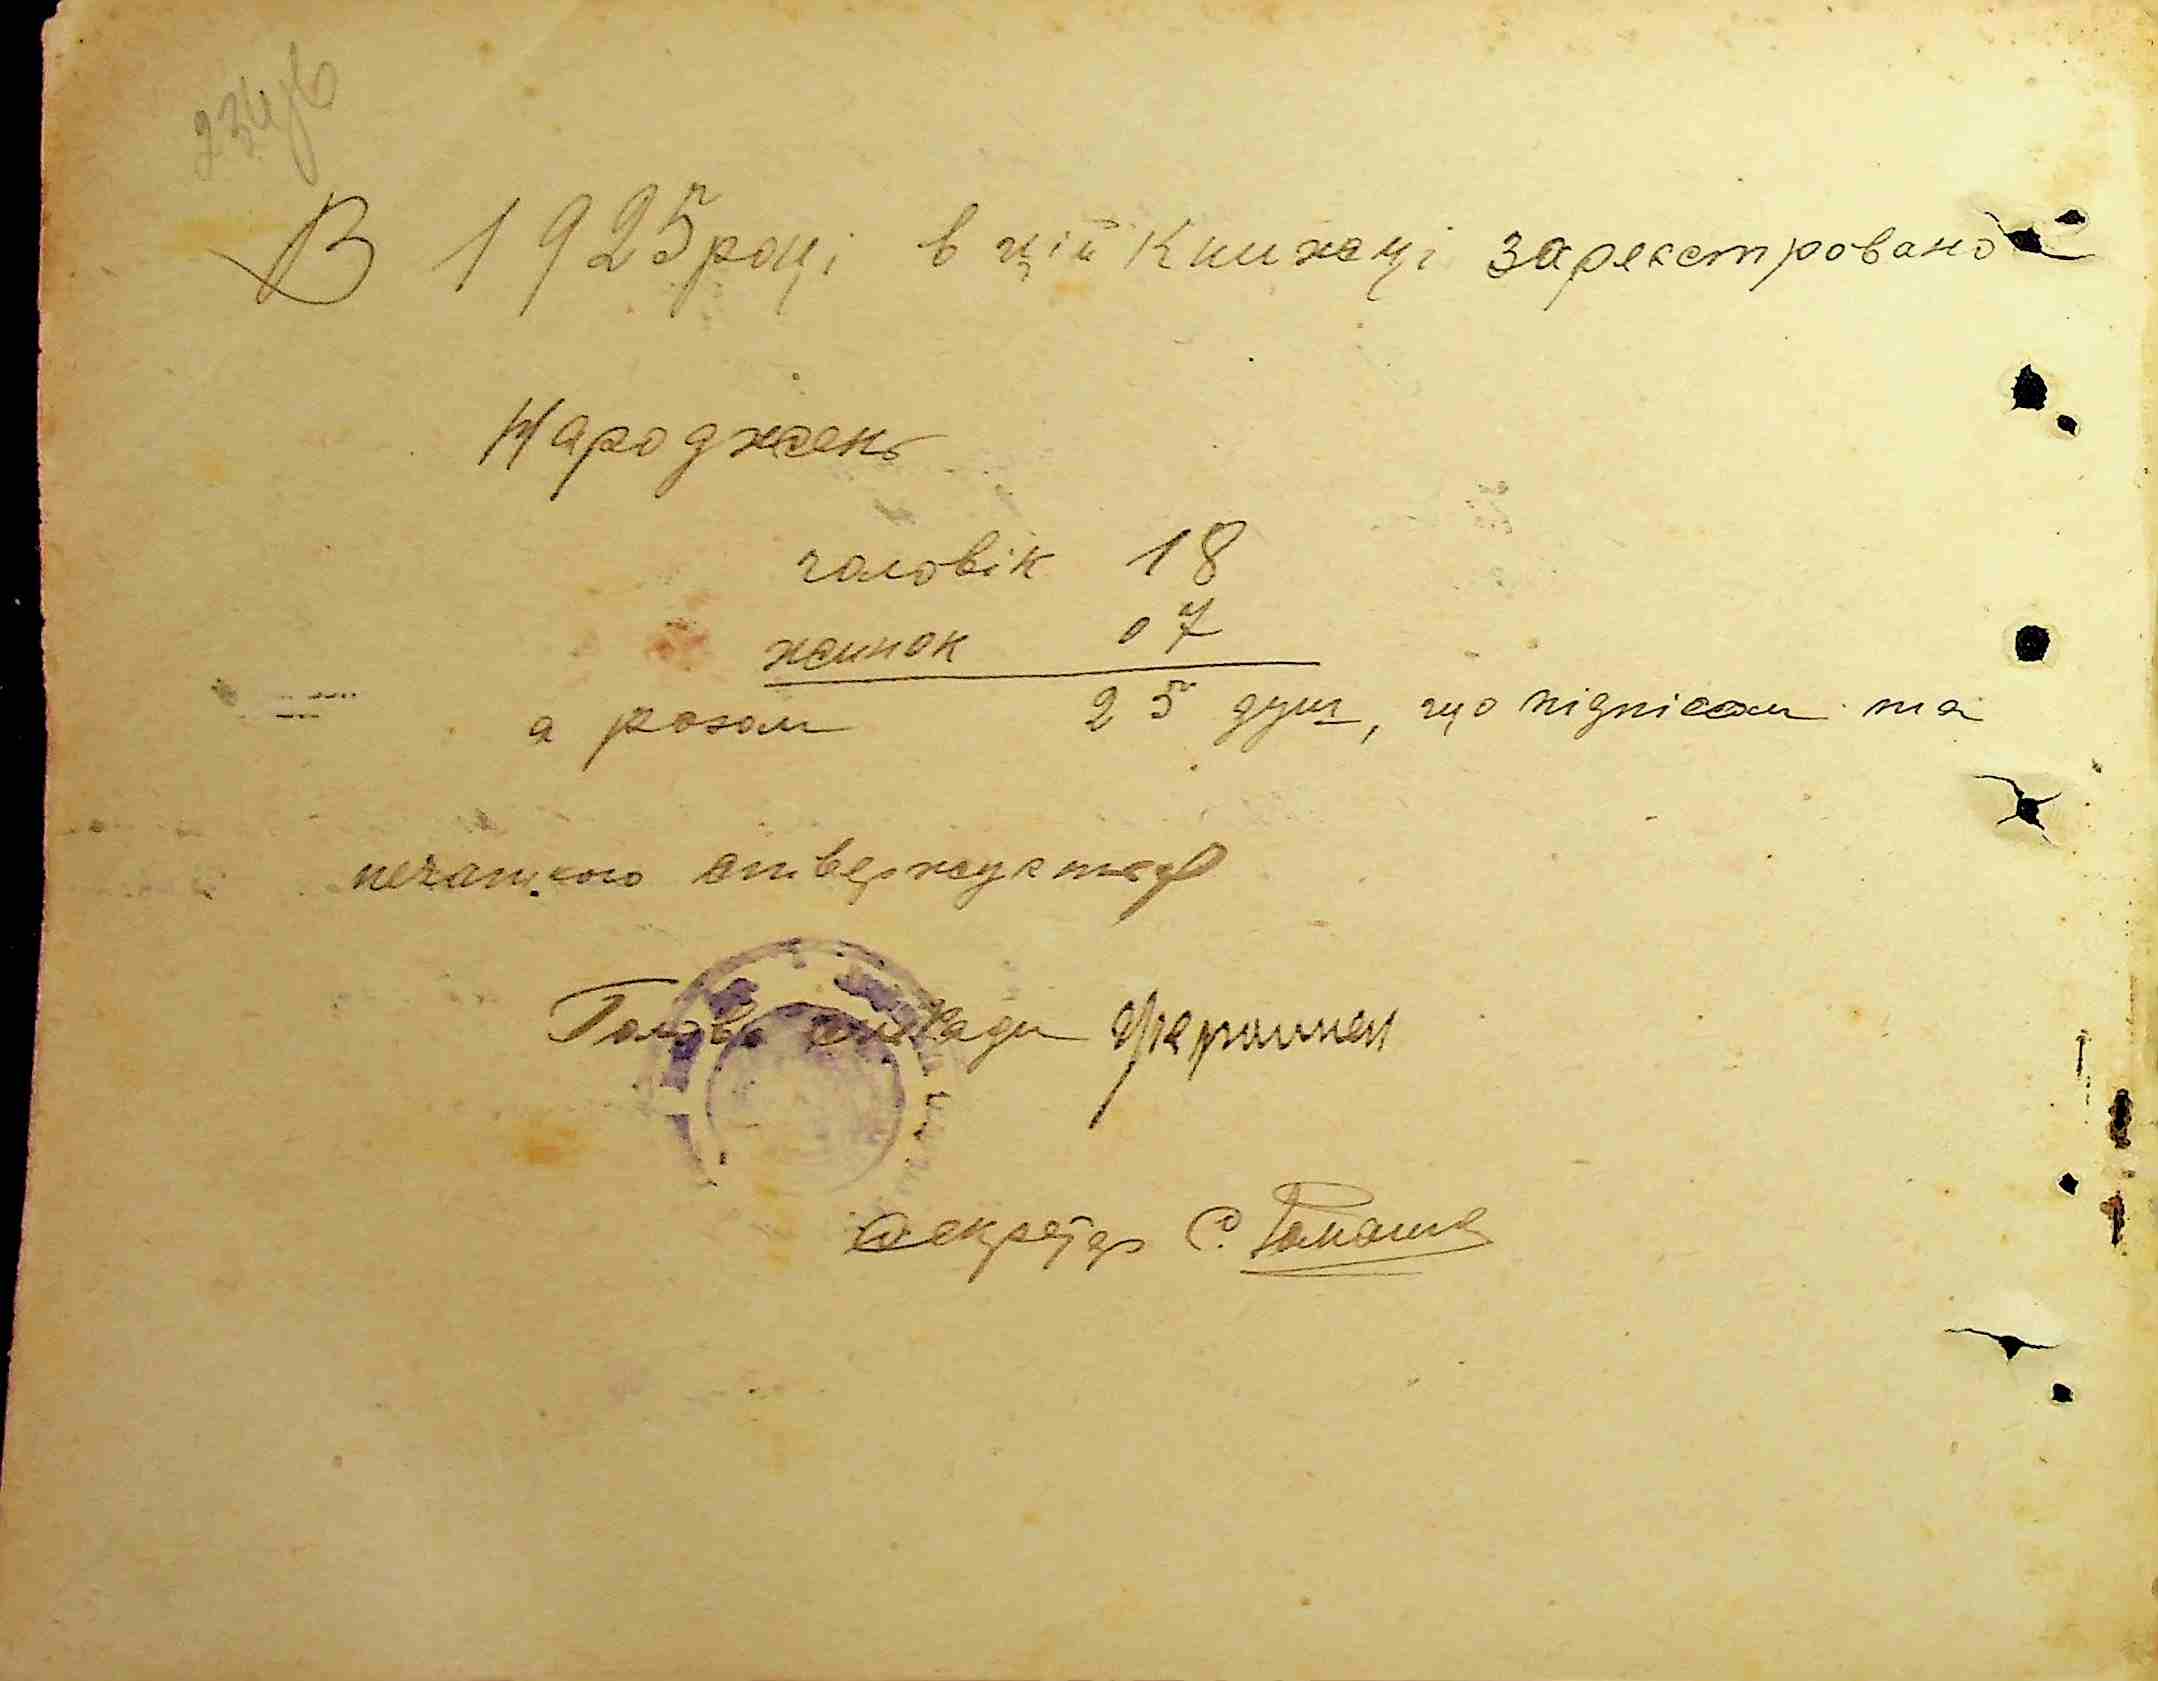 В 1925 році в цій Книжці зареєстровано
Народжень
чоловік 18
жинок 07
а разом 25 душ, що підпісом та
печаткою ствержуєтця
Голова сільради
Секретар С.